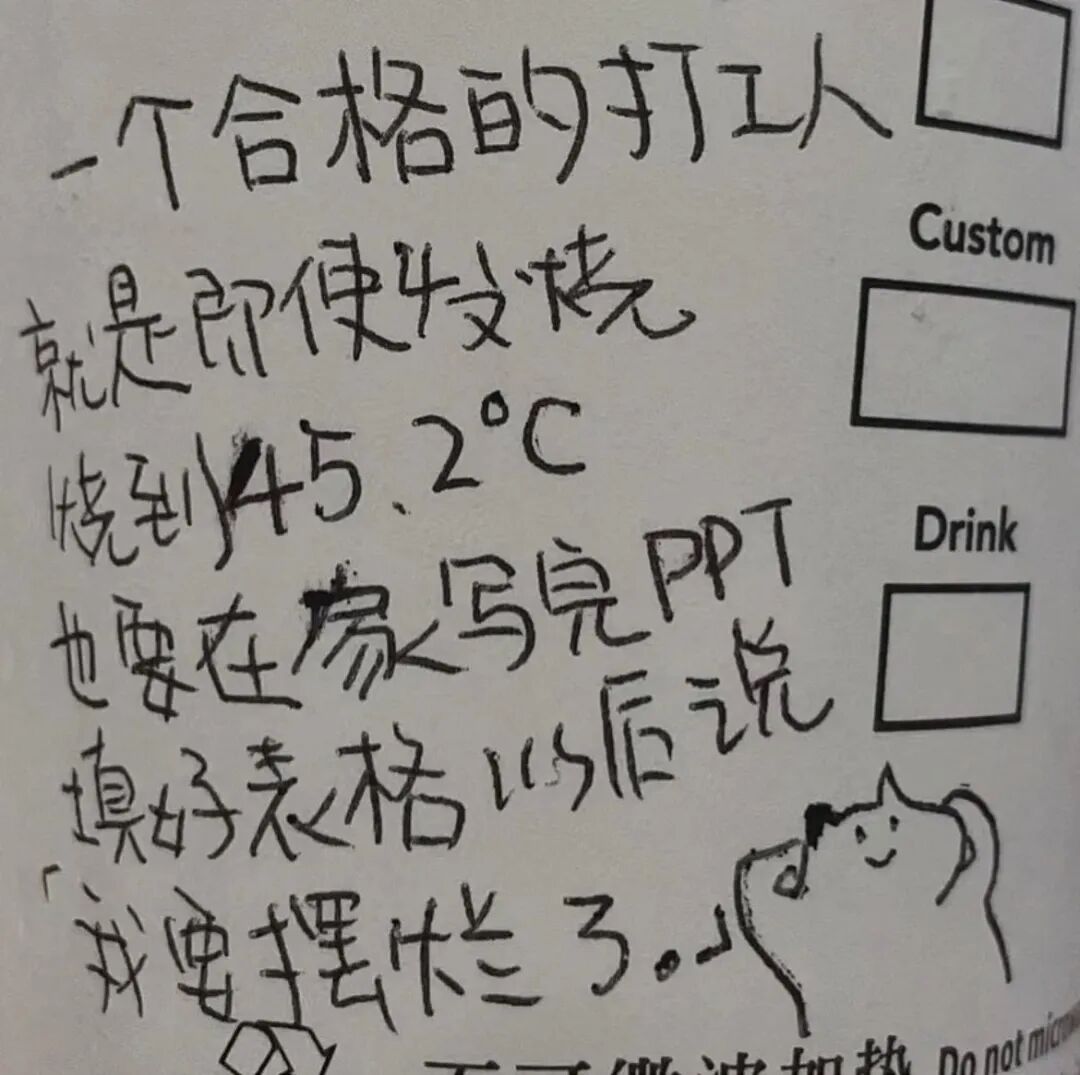 一个合格的打工人
就是即便发烧
烧到45.2°C
也要在家写完PPT
填好表格以后说
「我要摆烂了。」
Custom
Drink
不可微波加热 Do not micro